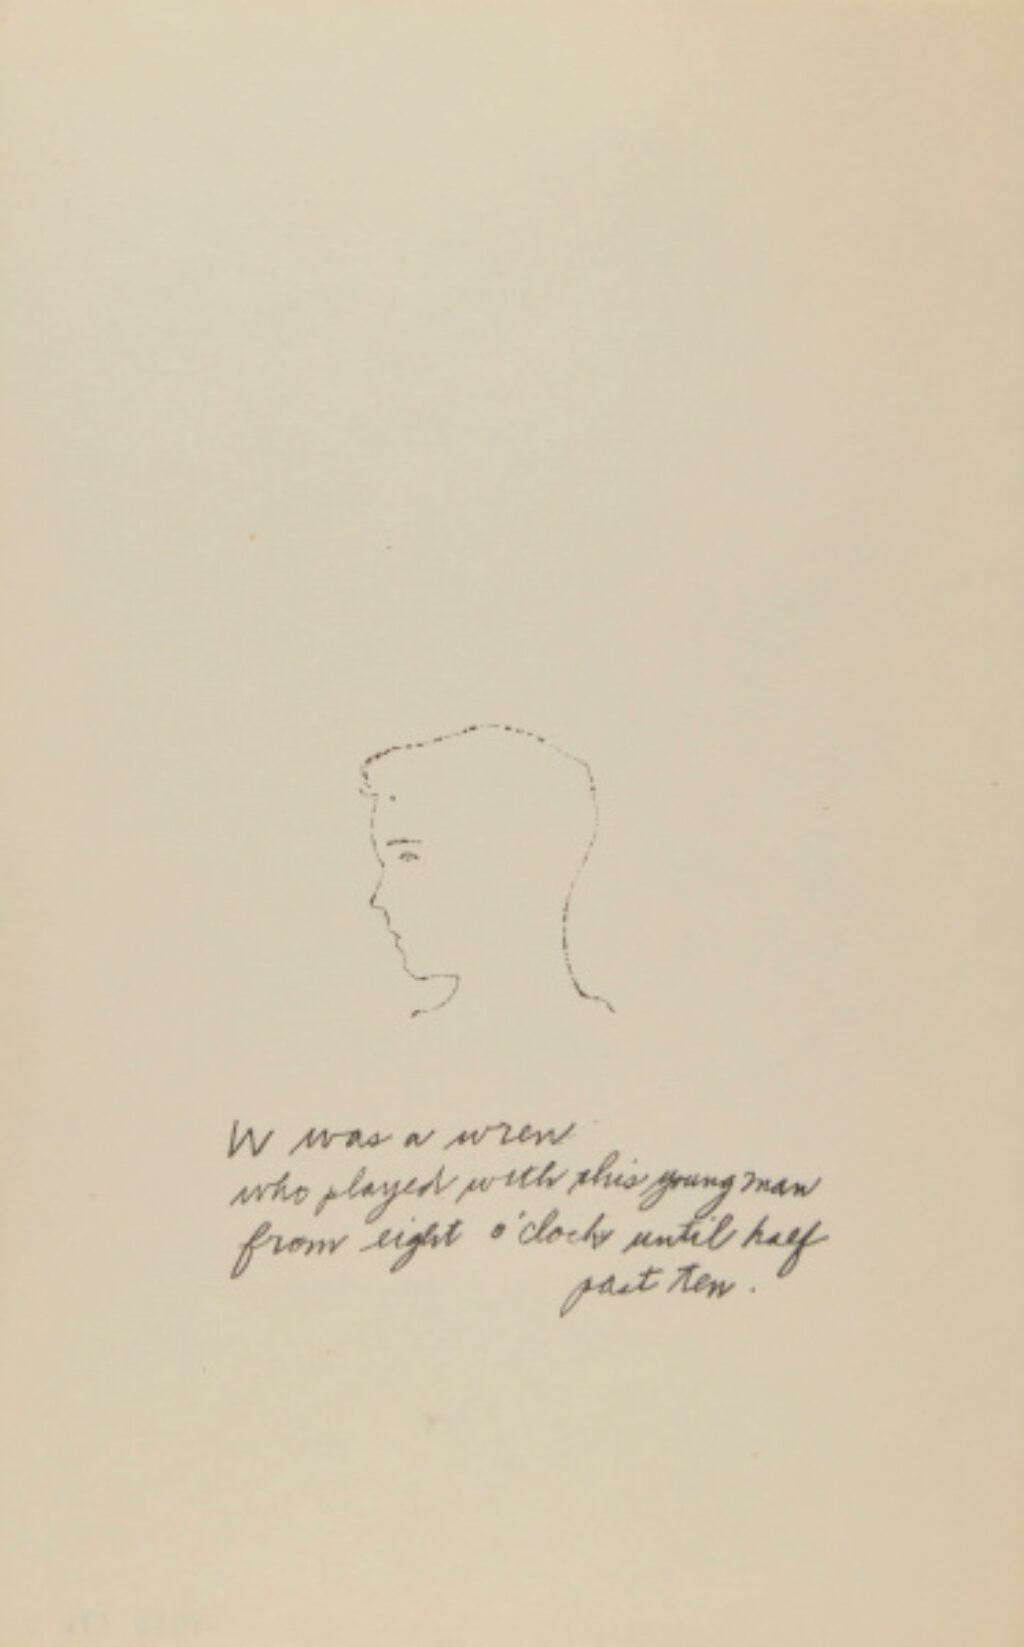 W was a wren
who played with this young man
from eight o'clock until half
past ten.